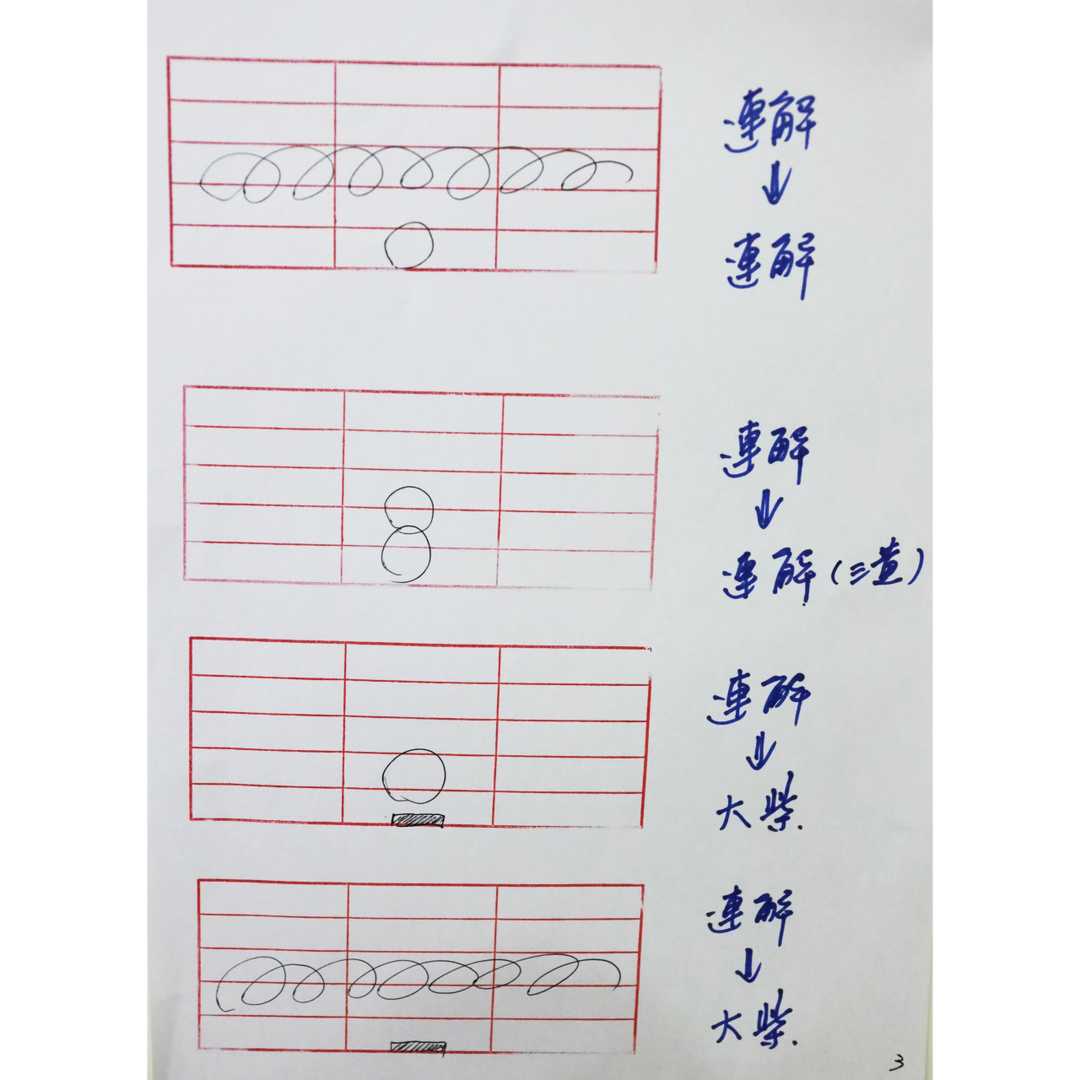 連解
↓
連解
連解
↓
連解(三黃)
連解
↓
大柴.
連解
↓
大柴.
3